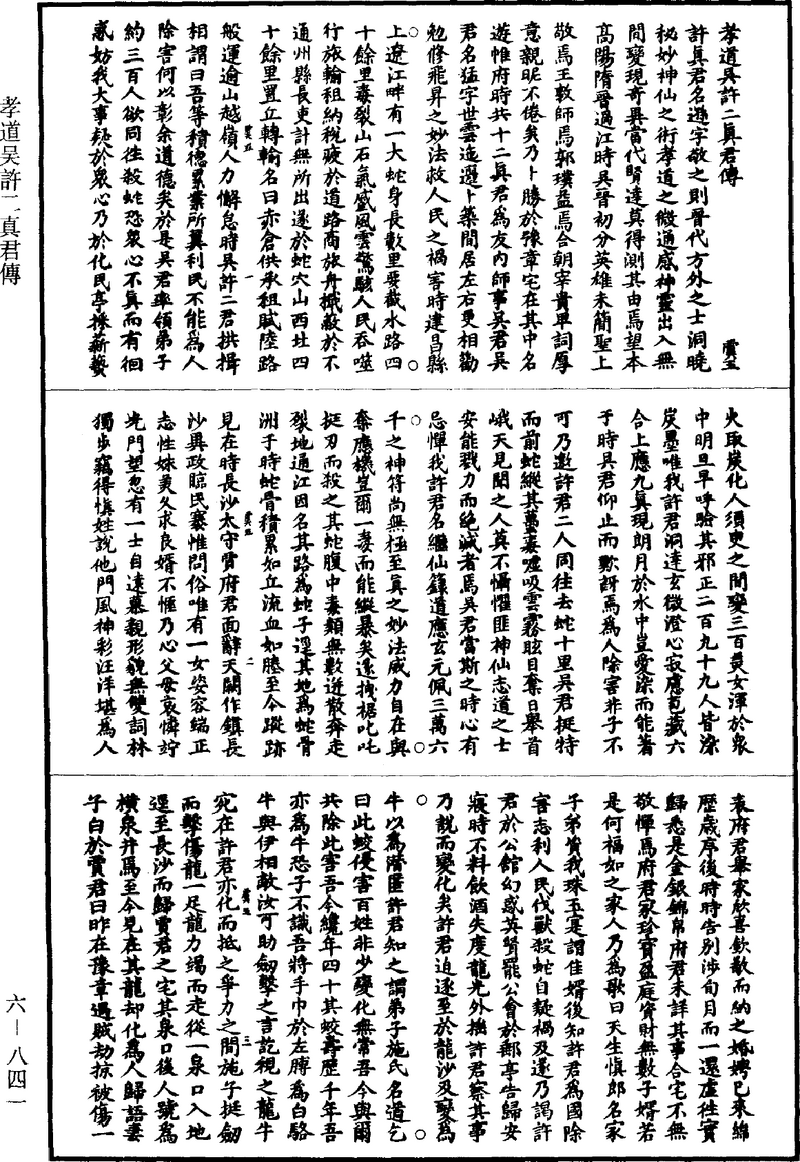 孝道吳許二真君傳
虞五
許真君名遜字敬之則晉代方外之士洞曉
秘妙神仙之術孝道之微通感神靈出入無
間變現奇異當代賢達莫得測其由焉望本
高陽隋晉過江時吳晉初分英雄未簡聖上
敬焉王敦師焉郭璞益焉合朝宰貴卑詞厚
意親昵不倦矣乃卜勝於豫章宅在其中名
遊帷府時共十二真君為友內師事吳君吳
君名猛字世雲迤邐卜築閒居左右更相勸
勉修飛昇之妙法救人民之禍害時建昌縣
上遼江畔有一大蛇身長數里要截水路四
十餘里毒裂山石氣盛風雲驚駭人民吞噬
行旅輸租納稅疲於道路商旅舟檝蔽於不
通州縣長吏計無所出遂於蛇穴山西北四
十餘里置立轉輸名曰亦倉供承租賦陸路
般運逾山越嶺人力懈怠時吳許二君拱揖
相謂曰吾等積德累業所冀利民不能為人
除害何以彰余道德矣於是吳君率領弟子
約三百人欲同往殺蛇恐眾心不真而有徊
惑妨我大事疑於眾心乃於化民亭採薪爇
火取炭化人須臾之間變三百美女渾於眾
中明旦早呼驗其邪正二百九十九人皆染
炭墨唯我許君洞達玄微澄心寂慮包藏六
合上應九真現朗月於水中豈愛染而能著
于時吳君仰止而歎訝焉為人除害非子不
可乃邀許君二人同往去蛇十里吳君挺特
而前蛇縱其萬毒噓吸雲霧眩目奪日舉首
峨天見聞之人莫不懾懼匪神仙志道之士
安能戮力而絕滅者焉吳君當斯之時心有
忌憚我許君名繼仙籙道應玄元佩三萬六
千之神符尚無極至真之妙法威力自在與
奪應機豈爾一毒而能縱暴矣遂拽裾叱吒
挺刃而殺之其蛇腹中毒類無數迸散奔走
裂地通江因名其路為蛇子逕其地為蛇骨
洲于時蛇骨積累如丘流血如塍至今蹤跡
見在時長沙太守賈府君面辭天闕作鎮長
沙異政臨民褰帷問俗唯有一女姿容端正
志性姝美久求良婿不愜乃心父母哀憐竚
光門望忽有一士自遠慕親形貌無雙詞林
獨步竊得慎姓說他門風神彩汪洋堪為人
表府君舉家欣喜欽敬而納之婚娉已來綿
歷歲序後時時告別涉旬月而一還虛往實
歸悉是金銀錦帛府君未詳其事合宅不無
敬憚焉府君家珍寶盈庭資財無數子婿若
是何福如之家人乃為歌曰天生慎郎名家
子弟贊我珠玉寔謂佳婿後知許君為國除
害志利人民伐獸殺蛇自疑禍及遂乃謁許
君於公館幻惑英賢罷公會於郵亭告歸安
寢時不料飲酒失度龍光外撫許君察其事
乃說而變化矣許君迫逐至於龍沙及變為
牛以為潛匿許君知之謂弟子施氏名道乞
曰此蛟侵害百姓非少變化無常吾今與爾
共除此害吾今纔年四十其蛟壽歷千年吾
亦為牛恐子不識吾將手巾於左膊為白駱
牛與伊相敵汝可助劍擊之言訖視之龍牛
宛在許君亦化而抵之爭力之間施子挺劍
而擊傷龍一足龍力竭而走從一泉口入地
逕至長沙而歸賈君之宅其泉口後人號為
橫泉井焉至今見在其龍却化為人歸語妻
子白於賈君曰昨在豫章遇賊劫掠被傷一
孝道吳許二真君傳
六－八四一